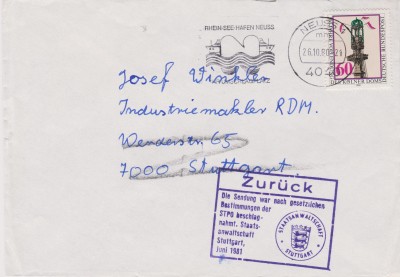 RHEIN-SEE-HAFEN NEUSS
NEUSS
26.10.80
404
60
DEUTSCHE BUNDESPOST
Josef Winkler
Industriemakler RDM.
Wenderstr 65
7000 Stuttgart
Zurück
Die Sendung war nach gesetzliches
Bestimmungen der
STPO beschlag-
nahmt. Staats-
anwaltschaft
Stuttgart,
Juni 1981
STAATSANWALTSCHAFT
STUTTGART